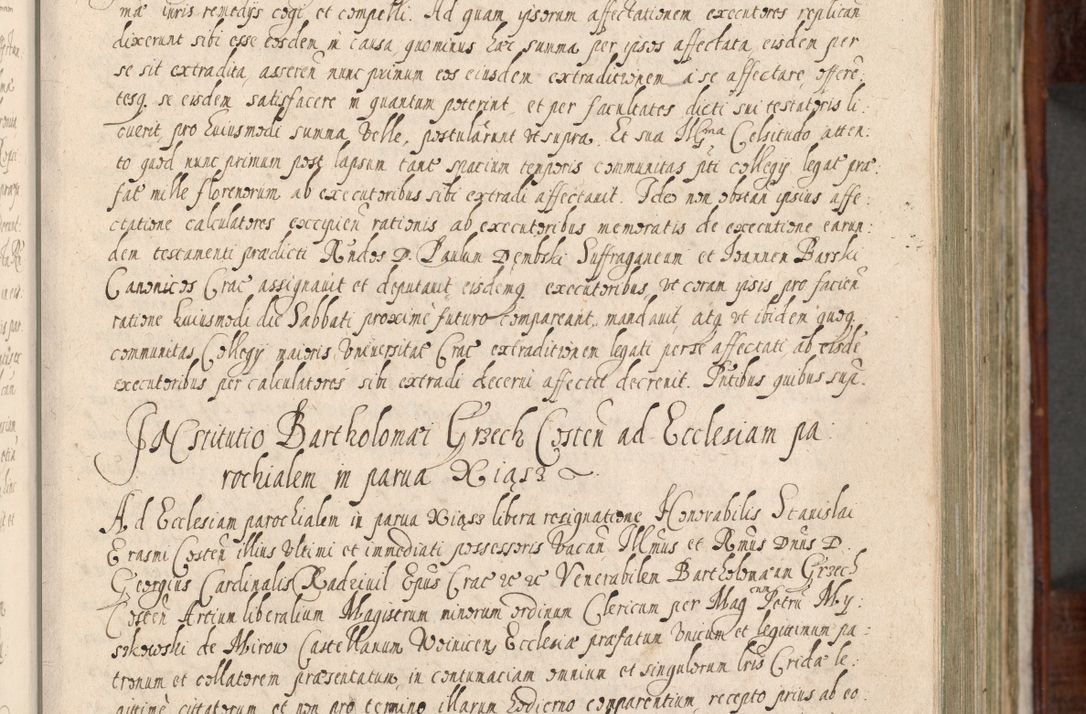 ma iuris remedijs cogi et compelli. Ad quam ipsorum affectationem executores replican
dixerunt sibi esse eosdem in causa, quominus haec summa per ipsos affectata, eisdem per
se sit extradita, asseren nunc primum eos eiusdem extraditionem a se affectare, offeren:
tesq. se eisdem satisfacere in quantum poterint, et per facultates dicti sui testatoris li:
cuerit, pro huiusmodi summa, velle, postularunt vt supra. Et sua Illma Celsitudo atten:
to quod nunc primum post lapsum tant spacium temporis communitas pti collegij legat prae:
fat mille florenorum ab executoribus sibi extradi affectauit. Ideo non obstan ipsius affe:
ctatione calculatores excipien rationis ab executoribus memoratis de executione earun:
dem testamenti praedicti Rndos D. Paulum Dembski Suffraganeum et Ioannem Barski
Canonicos Crac assignauit et deputauit eisdemq executoribus, vt coram ipsis pro facien
ratione huiusmodi die Sabbati proxime futuro compareant, mandauit, atq vt ibidem quoq
communitas Collegij maioris Vniuersitat Crac extraditionem legati per se affectati ab eisde
executoribus per calculatores sibi extradi decerni affectet decreuit. Pntibus quibus sup.
INstitutio Bartholomaei Grzech Costen ad Ecclesiam pa
rochialem in parua Xiąsz
Ad Ecclesiam parochialem in parua Xiąsz libera resignatione Honorabilis Stanislai
Erasmi Costen illius vltimi et immediati possessoris vacan Illmus et Rmus Dnus D.
Georgius Cardinalis Radziuil Epus Crac &c &c Venerabilem Bartholomaeum Grzech
Costen Artium liberalium Magistrum minorum ordinum Clericum per Magcum Petru My:
szkowski de Mirow Castellanum Woinicen, Ecclesiae praefatae vnicum et legitimum pa:
tronum et collatorem praesentatum, in contumaciam omnium et singulorum lris Cridae le:
gitime citatorum et non pro termino illarum hodierno comparentium, recepto prius ab eo: